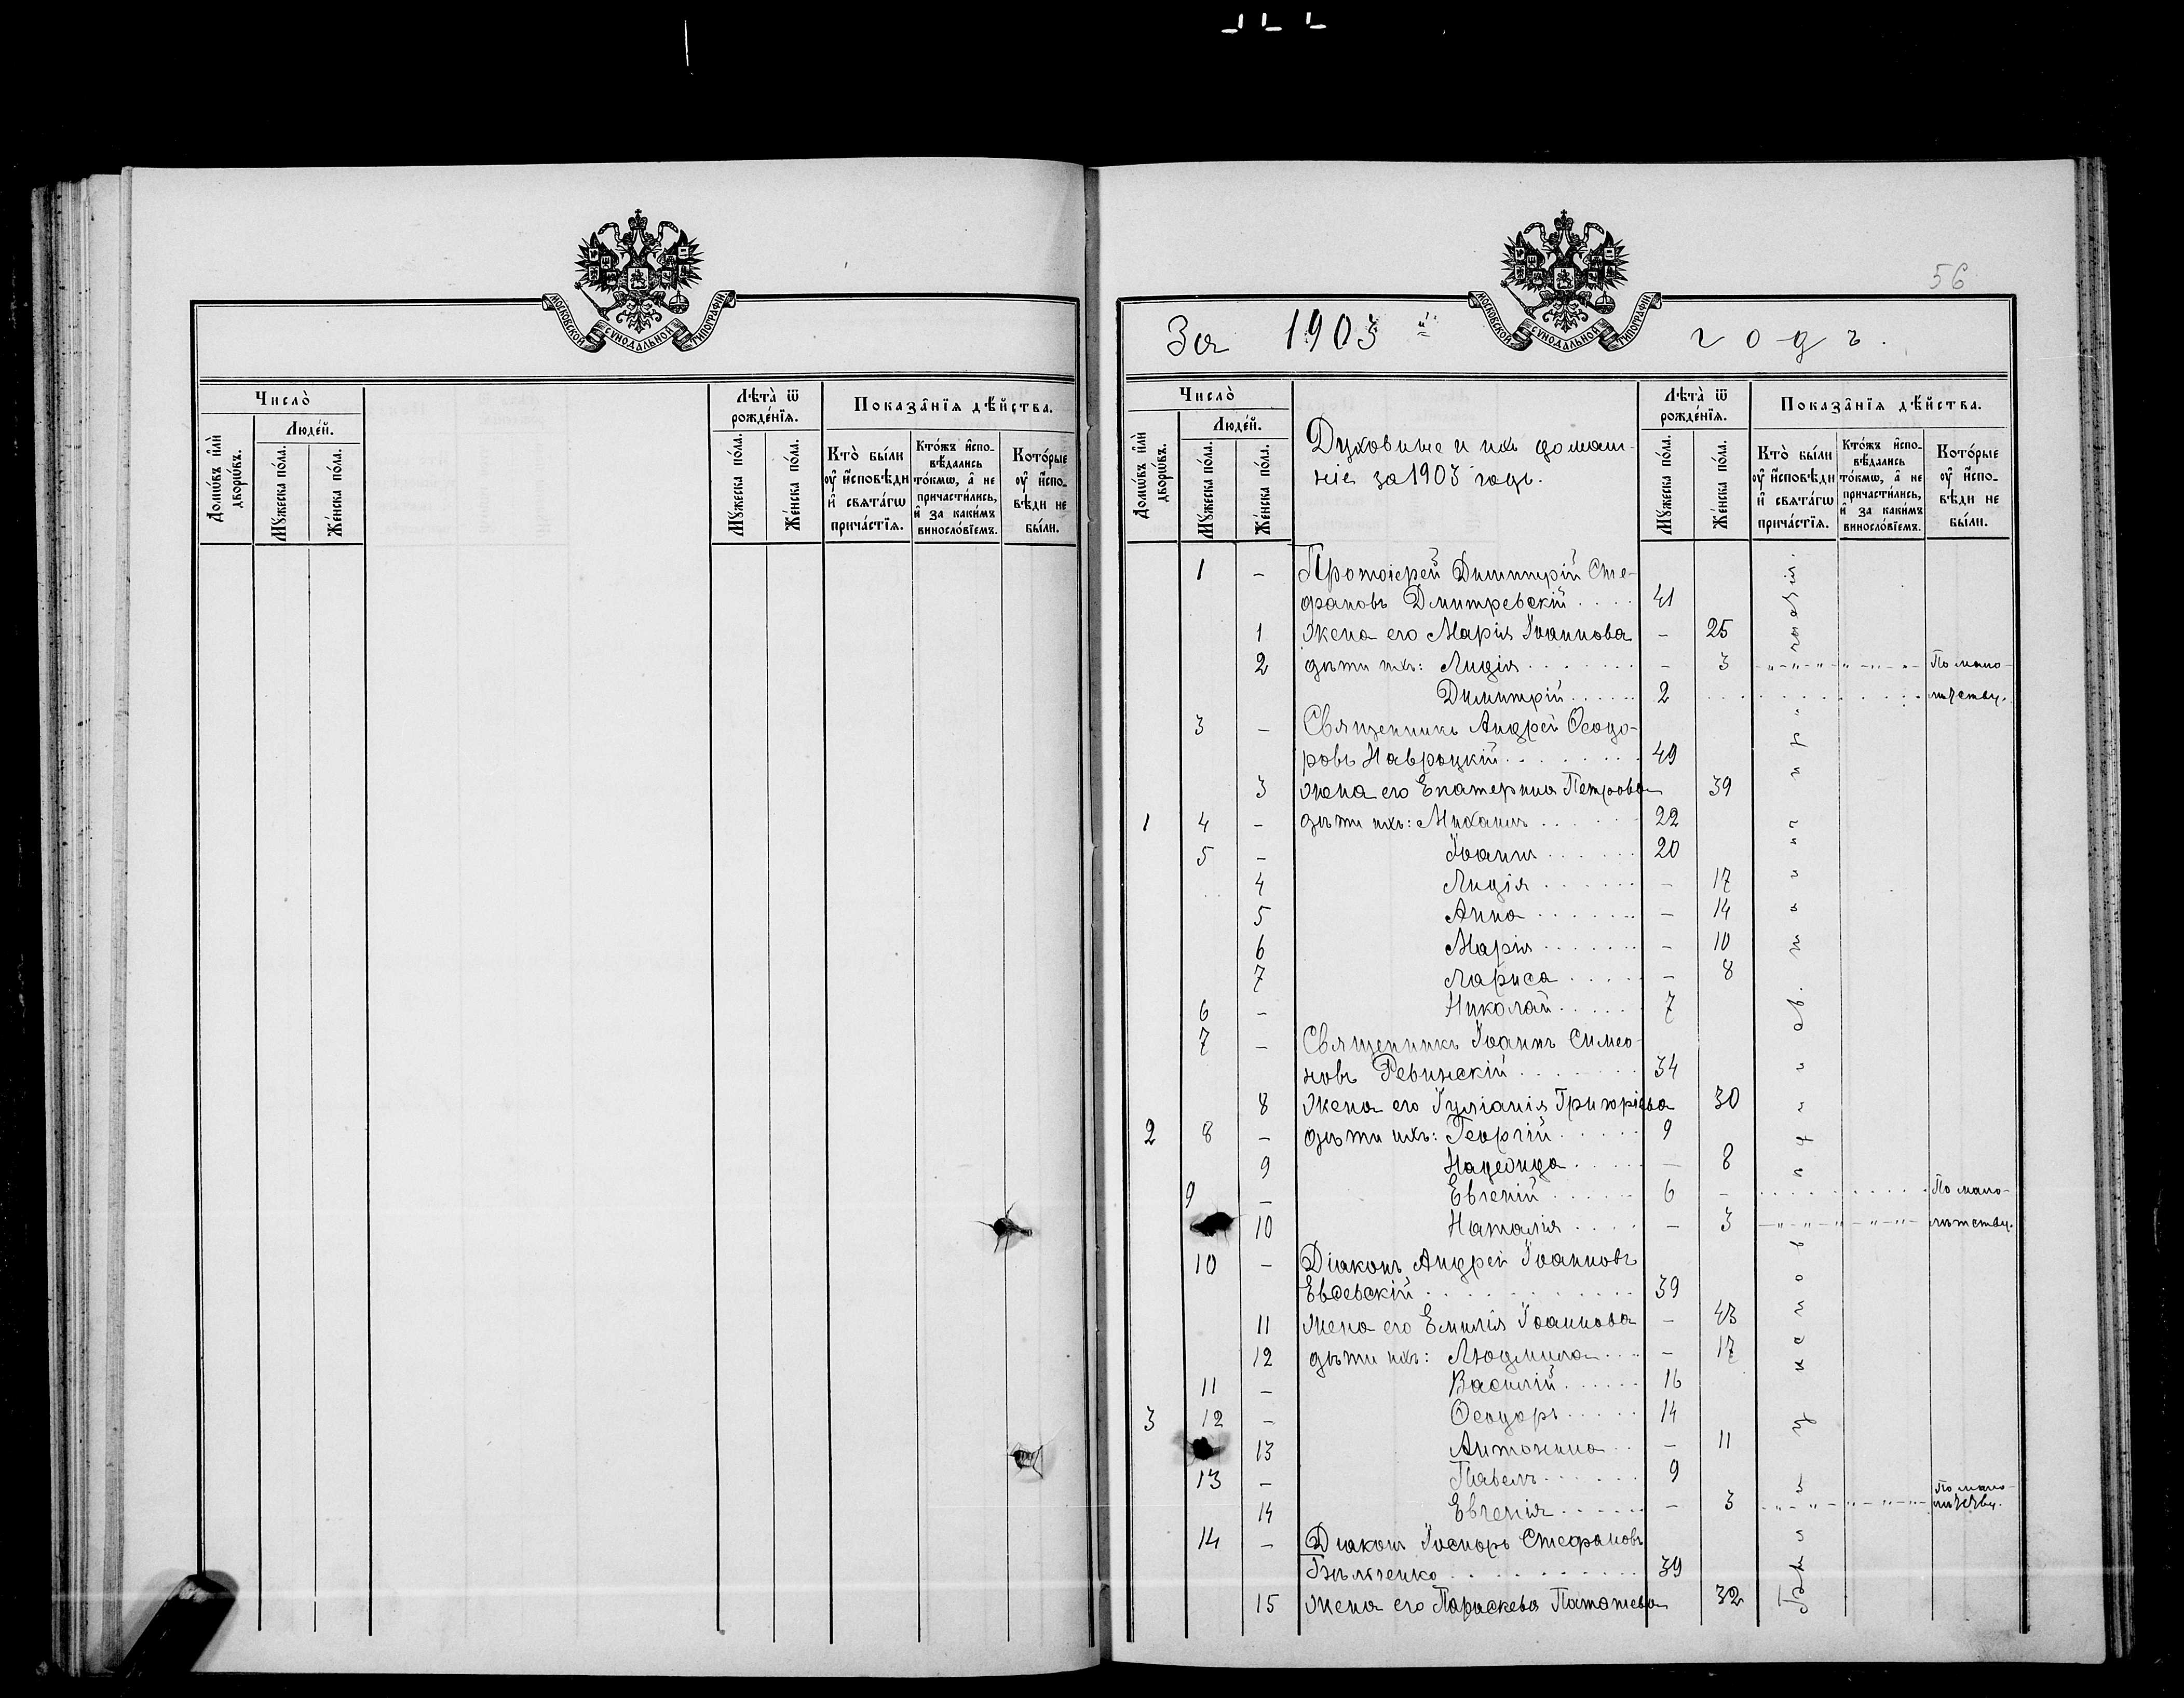 МОСКОВСКОЙ СѴНОДАЛЬНОЙ ТИПОГРАФІИ
Число̀
Людей.
Домѡвъ и҆лѝ дворѡвъ.
Мꙋжеска по́ла.
Же́нска по́ла.
Лѣта̀ ѿ рожде́нїѧ.
Мꙋжеска по́ла.
Же́нска по́ла.
Показа̑нїѧ дѣ́йства.
Кто̀ бы́ли оу҆ и҆́сповѣди и҆ свѧта́гѡ прича́стїѧ.
Кто́жъ и҆спо-вѣ́дались то́кмѡ, а҆ не причасти́лись, и҆ за каки́мъ винословїемъ.
Кото́рые оу҆ и҆́спо-вѣди не бы́ли.
56
МОСКОВСКОЙ СѴНОДАЛЬНОЙ ТИПОГРАФІИ
За 1903 й годъ.
Число̀
Людей.
Домѡвъ и҆лѝ дворѡвъ.
Мꙋжеска по́ла.
Же́нска по́ла.
Духовные и ихъ домаш-
ніе за 1903 годъ.
Лѣта̀ ѿ рожде́нїѧ.
Мꙋжеска по́ла.
Же́нска по́ла.
Показа̑нїѧ дѣ́йства.
Кто̀ бы́ли оу҆ и҆́сповѣди и҆ свѧта́гѡ прича́стїѧ.
Кто́жъ и҆спо-вѣ́дались то́кмѡ, а҆ не причасти́лись, и҆ за каки́мъ винословїемъ.
Кото́рые оу҆ и҆́спо-вѣди не бы́ли.
1 – Протоіерей Димитрій Сте-
фановъ Дмитревскій . . . . 41
1 Жена его Марія Іоаннова – 25
2 дѣти ихъ: Лидія . . . . . . – 3 По мало-
Димитрій . . . . . 2 лѣтству.
3 – Священникъ Андрей Ѳеодо-
ровъ Навроцкій . . . . . . 49
3 жена его Екатерина Петрова 39
1 4 – дѣти ихъ: Михаилъ . . . . . 22
5 – Іоаннъ . . . . . . 20
4 Лидія . . . . . . – 17
5 Анна . . . . . . – 14
6 Марія . . . . . . – 10
7 Лариса . . . . . – 8
6 – Николай . . . . . 7
7 – Священникъ Іоаннъ Симео-
новъ Ревинскій . . . . . . 34
8 Жена его Іуліанія Григоріева 30
2 8 – дѣти ихъ: Георгій . . . . . 9
9 Надежда . . . . – 8
9 – Евгеній . . . . . 6 – По мало-
10 Наталія . . . . – 3 лѣтству.
10 – Діаконъ Андрей Іоанновъ
Евсевскій . . . . . . . . . 39
11 Жена его Емилія Іоаннова – 43
12 дѣти ихъ: Людмила . . . – 17
11 – Василій . . . . . 16
3 12 – Ѳеодоръ . . . . . 14
13 Антонина . . – 11
13 – Павелъ . . . . . . 9
14 Евгенія . . . . . . – 3 По мало-
лѣтству.
14 – Діаконъ Стефановъ
39
15 жена его Параскева 32
Были у исповѣди и св. таинъ причастія.